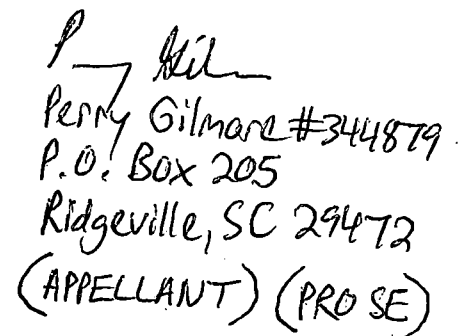 Perry Gilmore #344879
P.O. Box 205
Ridgeville, SC 29472
(APPELLANT) (PRO SE)